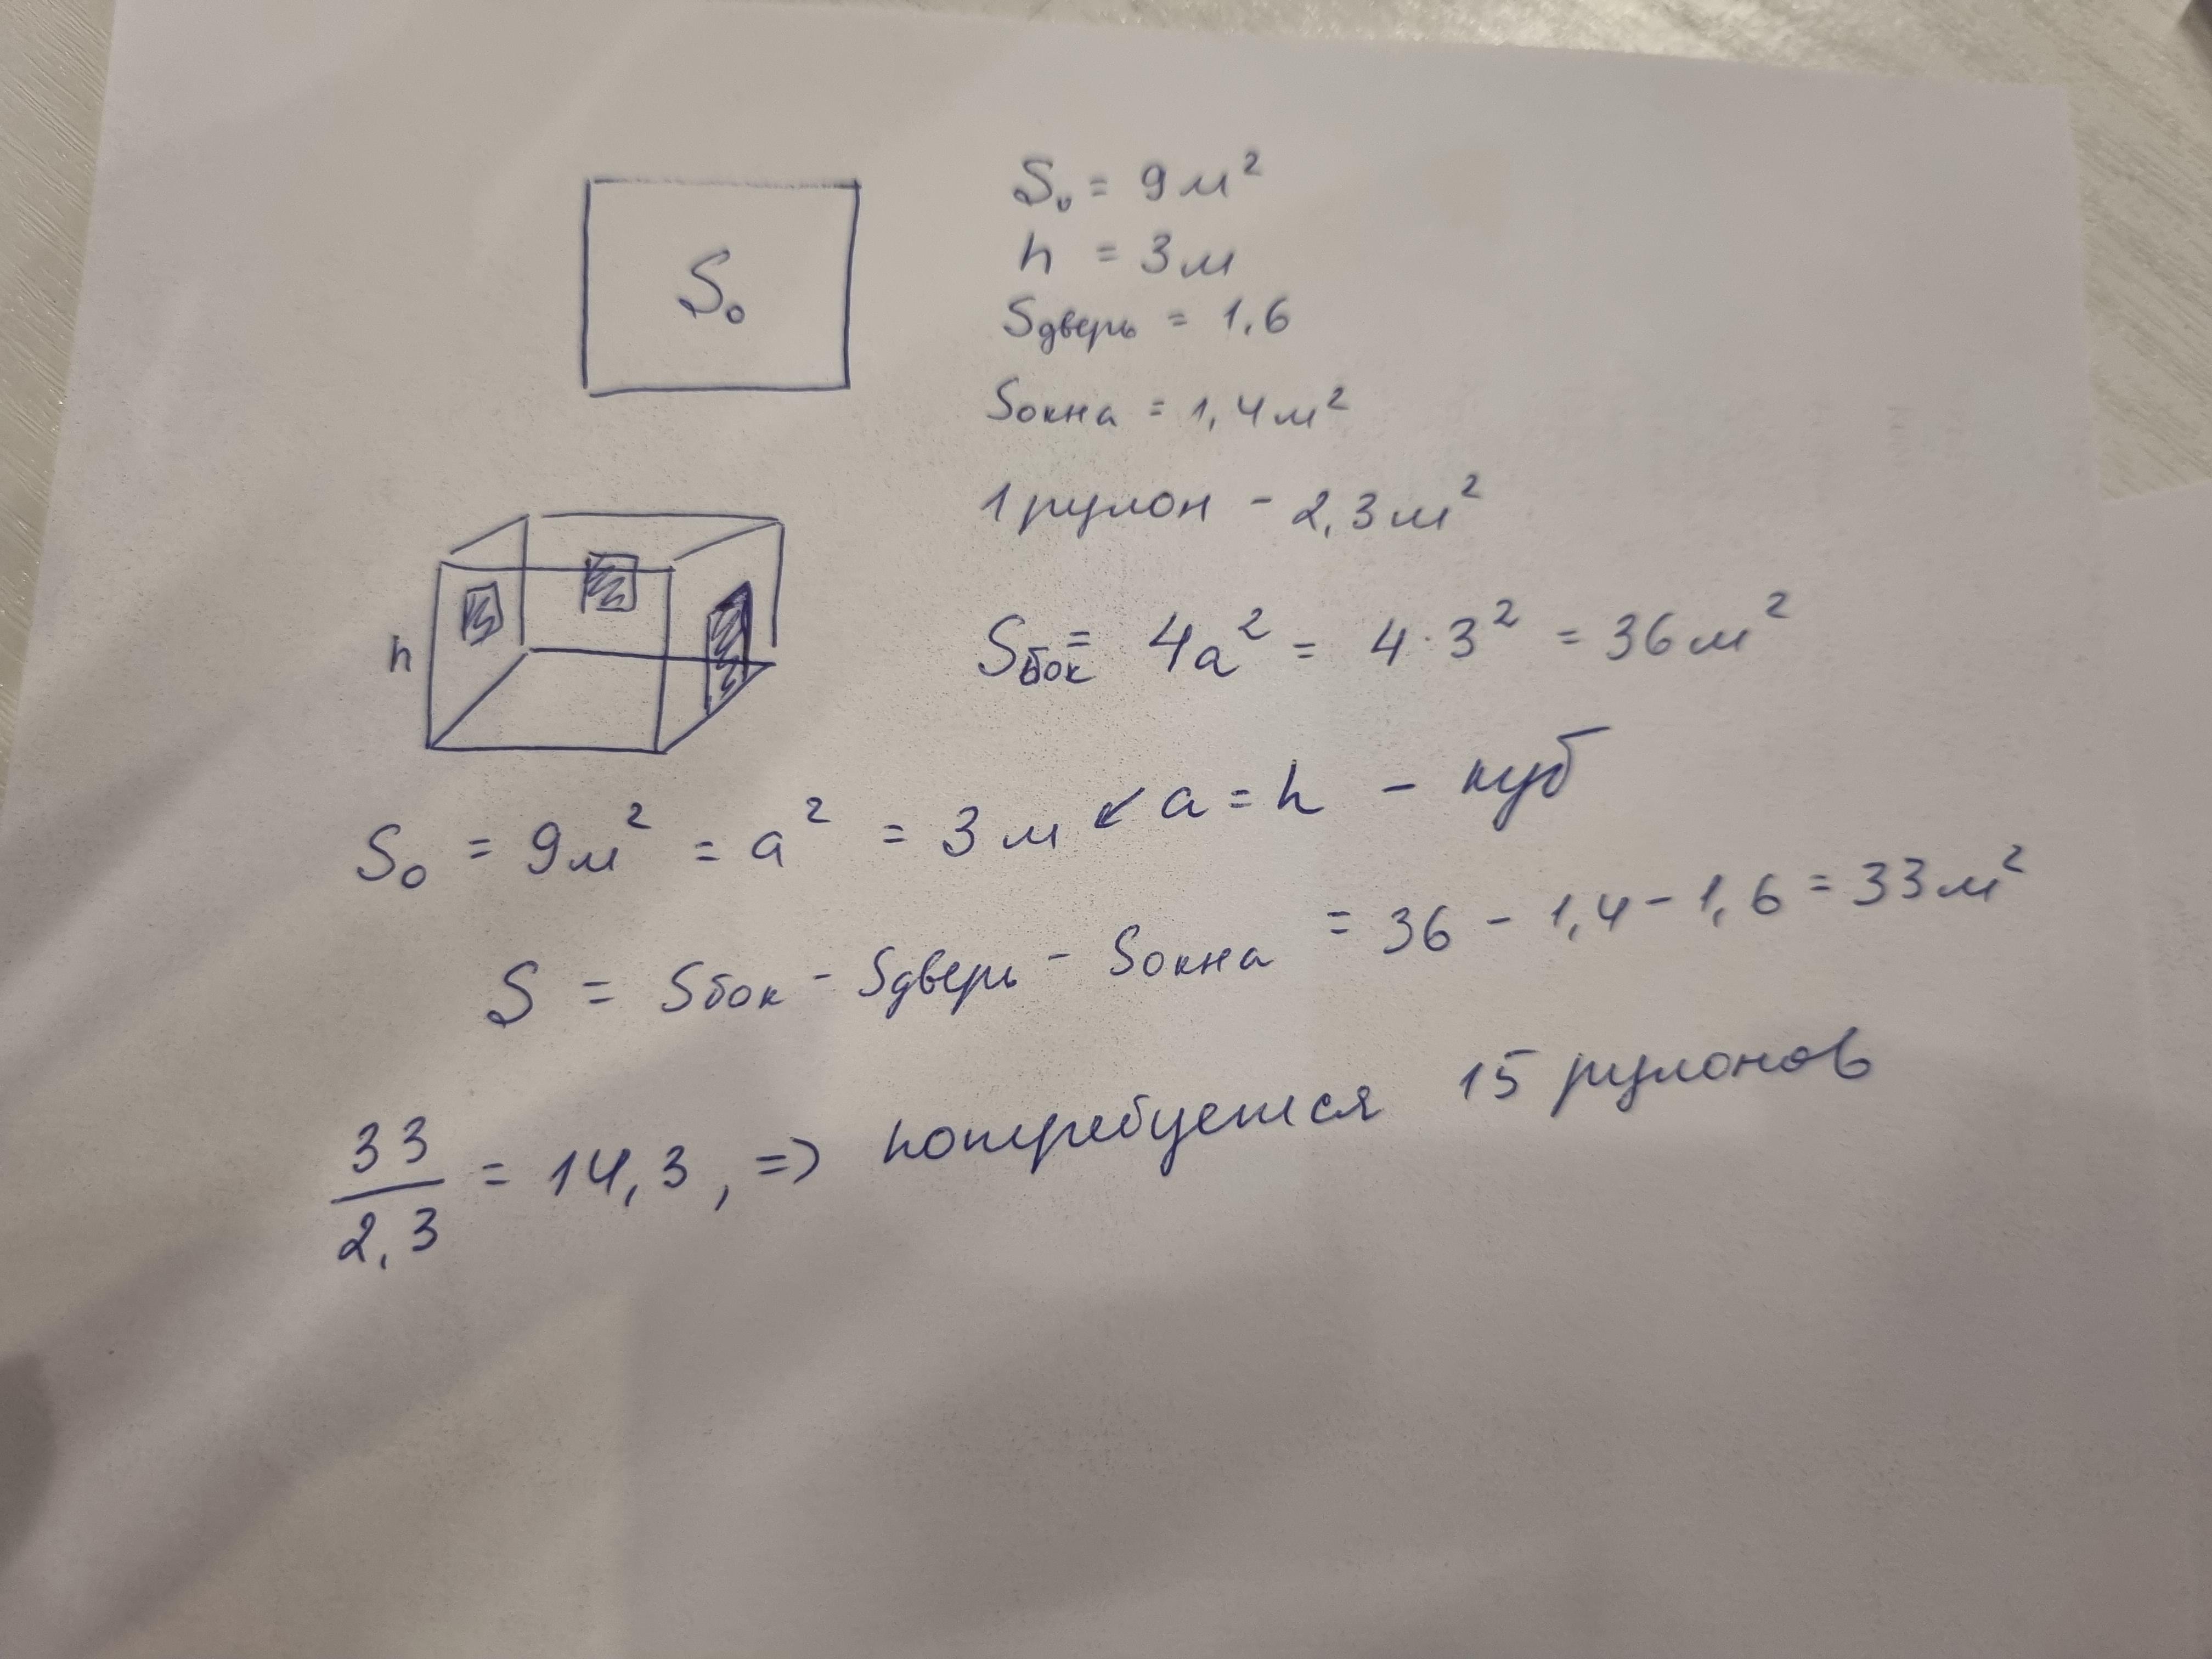 S₀
S₀ = 9 м²
h = 3 м
Sдверь = 1,6
Sокна = 1,4 м²
1 рулон - 2,3 м²
h
Sбок = 4a² = 4·3² = 36 м²
S₀ = 9 м² = a² = 3 м ↙ a = h - куб
S = Sбок - Sдверь - Sокна = 36 - 1,4 - 1,6 = 33 м²
33/2,3 = 14,3, => потребуется 15 рулонов